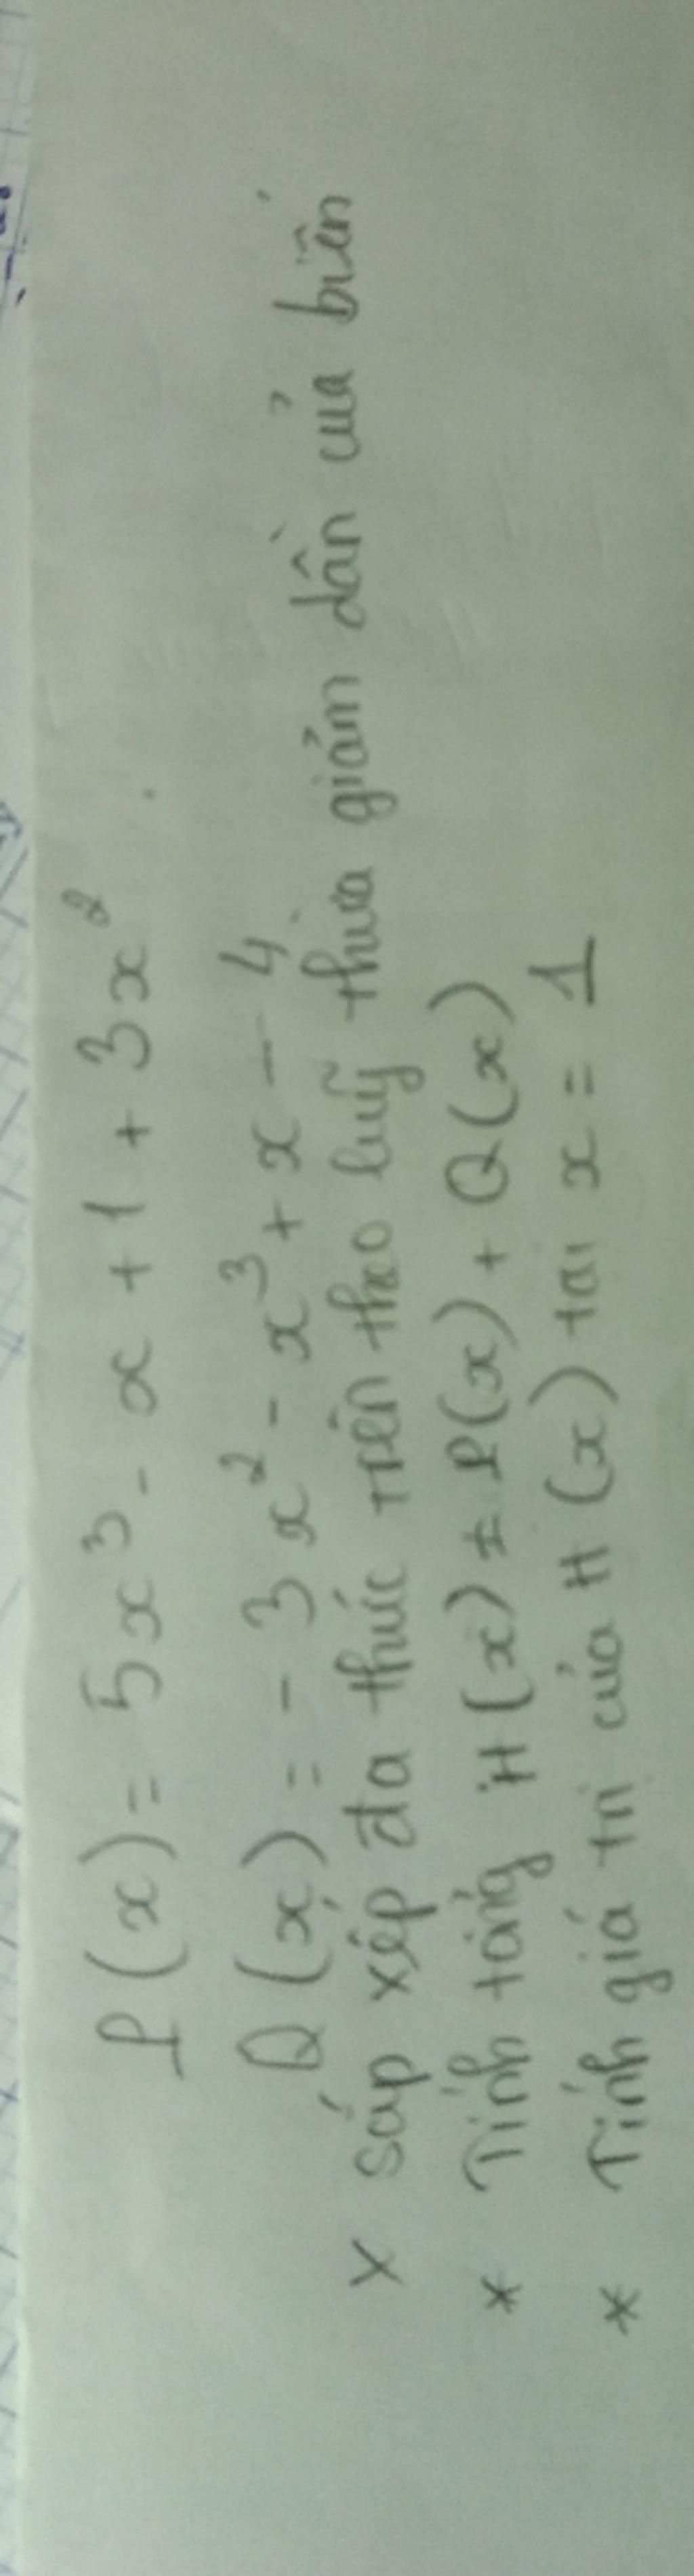 P(x) = 5x³ - x + 1 + 3x²
Q(x) = - 3x² - x³ + x - 4
x sắp xếp đa thức trên theo luỹ thừa giảm dần của biến
* Tính tổng H(x) = P(x) + Q(x)
* Tính giá trị của H(x) tại x = 1